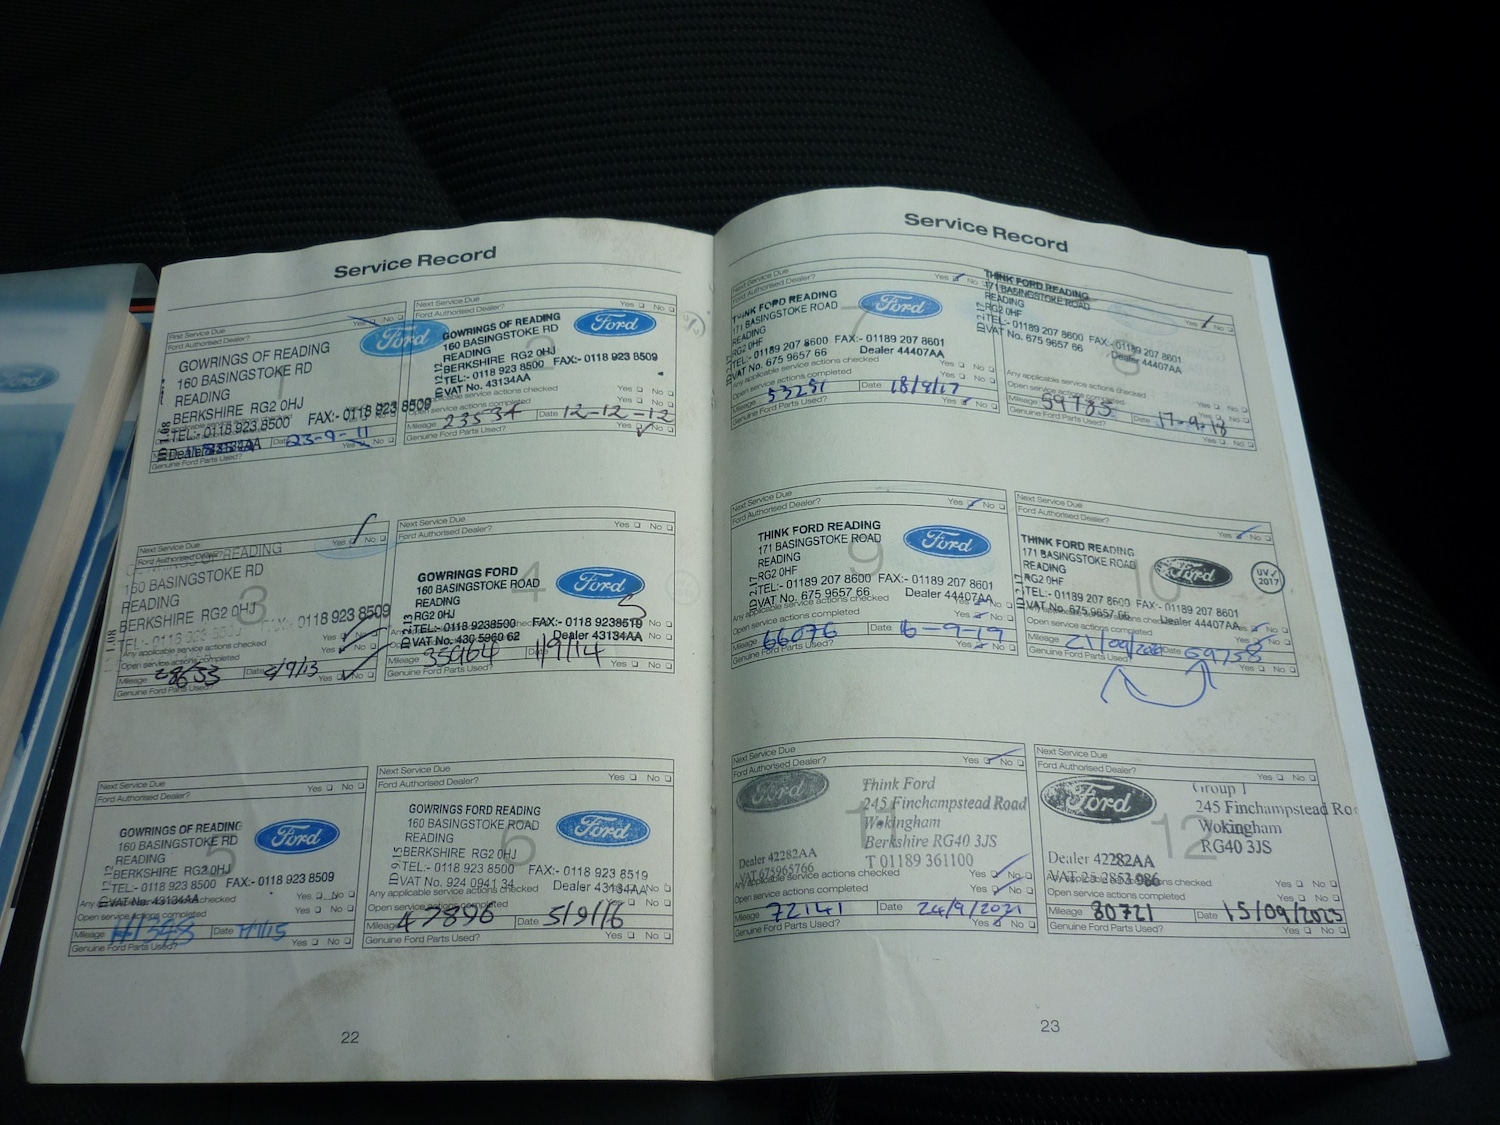 Service Record
First Service Due
Ford Authorised Dealer?
Yes No
Ford
GOWRINGS OF READING
160 BASINGSTOKE RD
READING
BERKSHIRE RG2 0HJ
TEL:- 0118 923 8500 FAX:- 0118 923 8509
Dealer 43134AA
Date 23-9-11
Yes No
Genuine Ford Parts Used?
Next Service Due
Ford Authorised Dealer?
Yes No
2
Ford
GOWRINGS OF READING
160 BASINGSTOKE RD
READING
BERKSHIRE RG2 0HJ
TEL:- 0118 923 8500 FAX:- 0118 923 8509
VAT No. 43134AA
Open service actions completed
Yes No
Yes No
Mileage 23534 Date 12-12-12
Genuine Ford Parts Used? Yes No
Next Service Due
Ford Authorised Dealer?
Yes No
3
READING
160 BASINGSTOKE RD
READING
BERKSHIRE RG2 0HJ
TEL:- 0118 923 FAX:- 0118 923 8509
Open service actions completed
Mileage 28655 Date 2/9/13
Genuine Ford Parts Used? Yes No
Next Service Due
Ford Authorised Dealer?
Yes No
4
Ford
GOWRINGS FORD
160 BASINGSTOKE ROAD
READING
RG2 0HJ
TEL:- 0118 9238500 FAX:- 0118 9238519
VAT No. 430 5960 62 Dealer 43134AA
Mileage 35964 1/9/14
Genuine Ford Parts Used? Yes No
Next Service Due
Ford Authorised Dealer?
Yes No
5
Ford
GOWRINGS OF READING
160 BASINGSTOKE RD
READING
BERKSHIRE RG2 0HJ
TEL:- 0118 923 8500 FAX:- 0118 923 8509
VAT No. 43134AA
Yes No
Open service actions completed Yes No
Mileage Date
Genuine Ford Parts Used? Yes No
Next Service Due
Ford Authorised Dealer?
Yes No
6
Ford
GOWRINGS FORD READING
160 BASINGSTOKE ROAD
READING
BERKSHIRE RG2 0HJ
TEL:- 0118 923 8500 FAX:- 0118 923 8519
VAT No. 924 0941 34 Dealer 43134AA
Any applicable service actions checked
Open service actions completed
Mileage 47896 Date 5/9/16
Genuine Ford Parts Used? Yes No
22
Service Record
Next Service Due
Ford Authorised Dealer?
Yes No
7
Ford
THINK FORD READING
171 BASINGSTOKE ROAD
READING
RG2 0HF
TEL:- 01189 207 8600 FAX:- 01189 207 8601
VAT No. 675 9657 66 Dealer 44407AA
Any applicable service actions checked Yes No
Open service actions completed Yes No
Mileage 53251 Date
Genuine Ford Parts Used? Yes No
THINK FORD READING
171 BASINGSTOKE ROAD
READING
RG2 0HF
TEL:- 01189 207 8600 FAX:- 01189 207 8601
VAT No. 675 9657 66 Dealer 44407AA
Yes No
8
Any applicable service actions checked
Open service actions completed
Mileage 59785 Date 17-9-18
Genuine Ford Parts Used? Yes No
Next Service Due
Ford Authorised Dealer?
Yes No
9
Ford
THINK FORD READING
171 BASINGSTOKE ROAD
READING
RG2 0HF
TEL:- 01189 207 8600 FAX:- 01189 207 8601
VAT No. 675 9657 66 Dealer 44407AA
Any applicable service actions checked
Open service actions completed
Mileage 66076 Date 16-9-19
Genuine Ford Parts Used? Yes No
Next Service Due
Ford Authorised Dealer?
Yes No
10
Ford
UV 2017
THINK FORD READING
171 BASINGSTOKE ROAD
READING
RG2 0HF
TEL:- 01189 207 8600 FAX:- 01189 207 8601
VAT No. 675 9657 66 Dealer 44407AA
Open service actions completed
Mileage 21/09/2020 Date 69758
Genuine Ford Parts Used? Yes No
Next Service Due
Ford Authorised Dealer?
Yes No
11
Ford
Think Ford
245 Finchampstead Road
Wokingham
Berkshire RG40 3JS
T 01189 361100
Dealer 42282AA
VAT 675965766
Any applicable service actions checked Yes No
Open service actions completed Yes No
Mileage 72141 Date 24/9/2021
Genuine Ford Parts Used? Yes No
Next Service Due
Ford Authorised Dealer?
Yes No
12
Ford
Group 1
245 Finchampstead Ro
Wokingham
RG40 3JS
Dealer 42282AA
Open service actions completed
Yes No
Yes No
Mileage 80721 Date
Genuine Ford Parts Used? Yes No
23